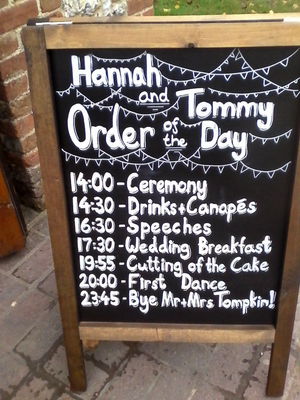 Hannah
and Tommy
Order of the Day
14:00 - Ceremony
14:30 - Drinks + Canapés
16:30 - Speeches
17:30 - Wedding Breakfast
19:55 - Cutting of the Cake
20:00 - First Dance
23:45 - Bye Mr + Mrs Tompkin!